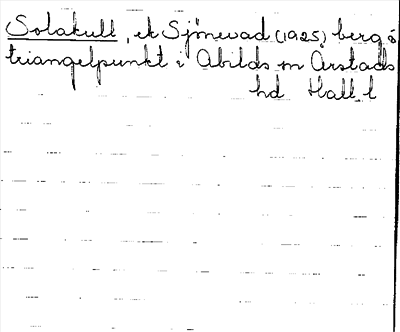 Solakull, ek Sjönevad (1925) berg o
triangelpunkt i Abilds sn Årstads
hd Hall l